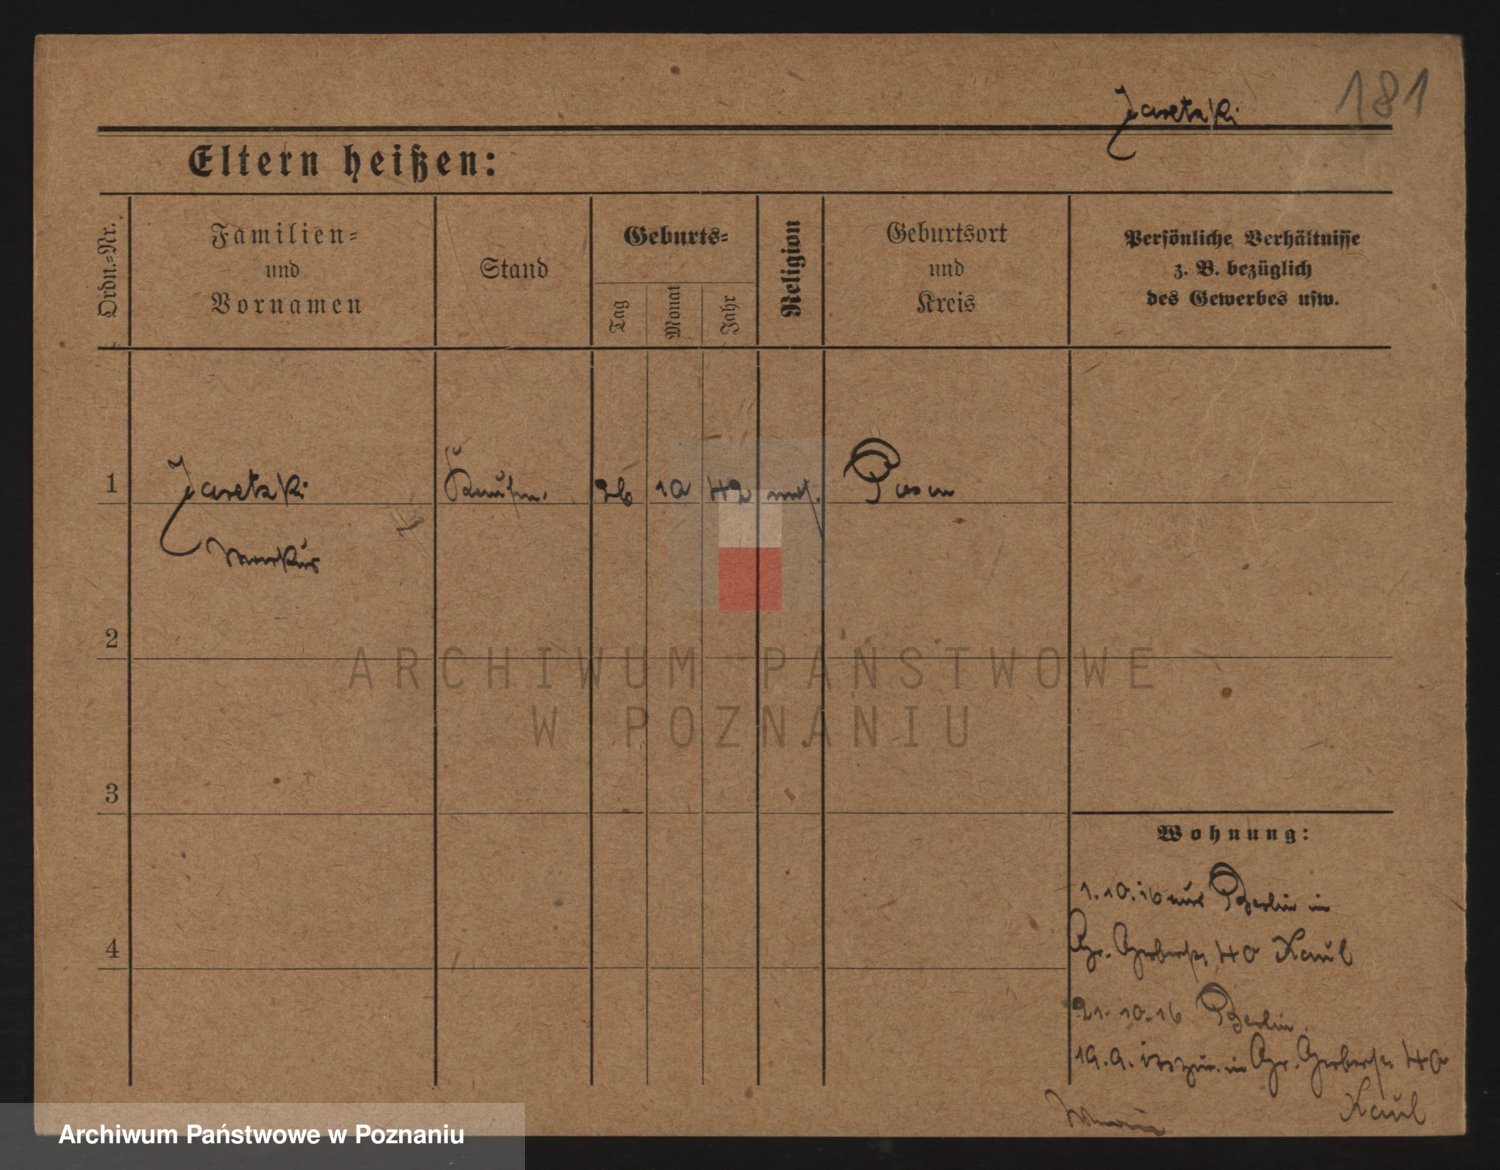 181
Jaretzki
Eltern heißen:
Ordn.-Nr.
Familien-
und
Vornamen
Stand
Geburts-
Tag
Monat
Jahr
Religion
Geburtsort
und
Kreis
Persönliche Verhältnisse
z. B. bezüglich
des Gewerbes usw.
1
Jaretzki
Kaufm.
26
10
42
mos.
Posen
Markus
2
ARCHIWUM PAŃSTWOWE
W POZNANIU
3
Wohnung:
1.10.16 aus Berlin in
Gr. Gerberstr. 40 Kaul
4
21.10.16 Berlin.
in Gr. Gerberstr. 40
Kaul
Archiwum Państwowe w Poznaniu